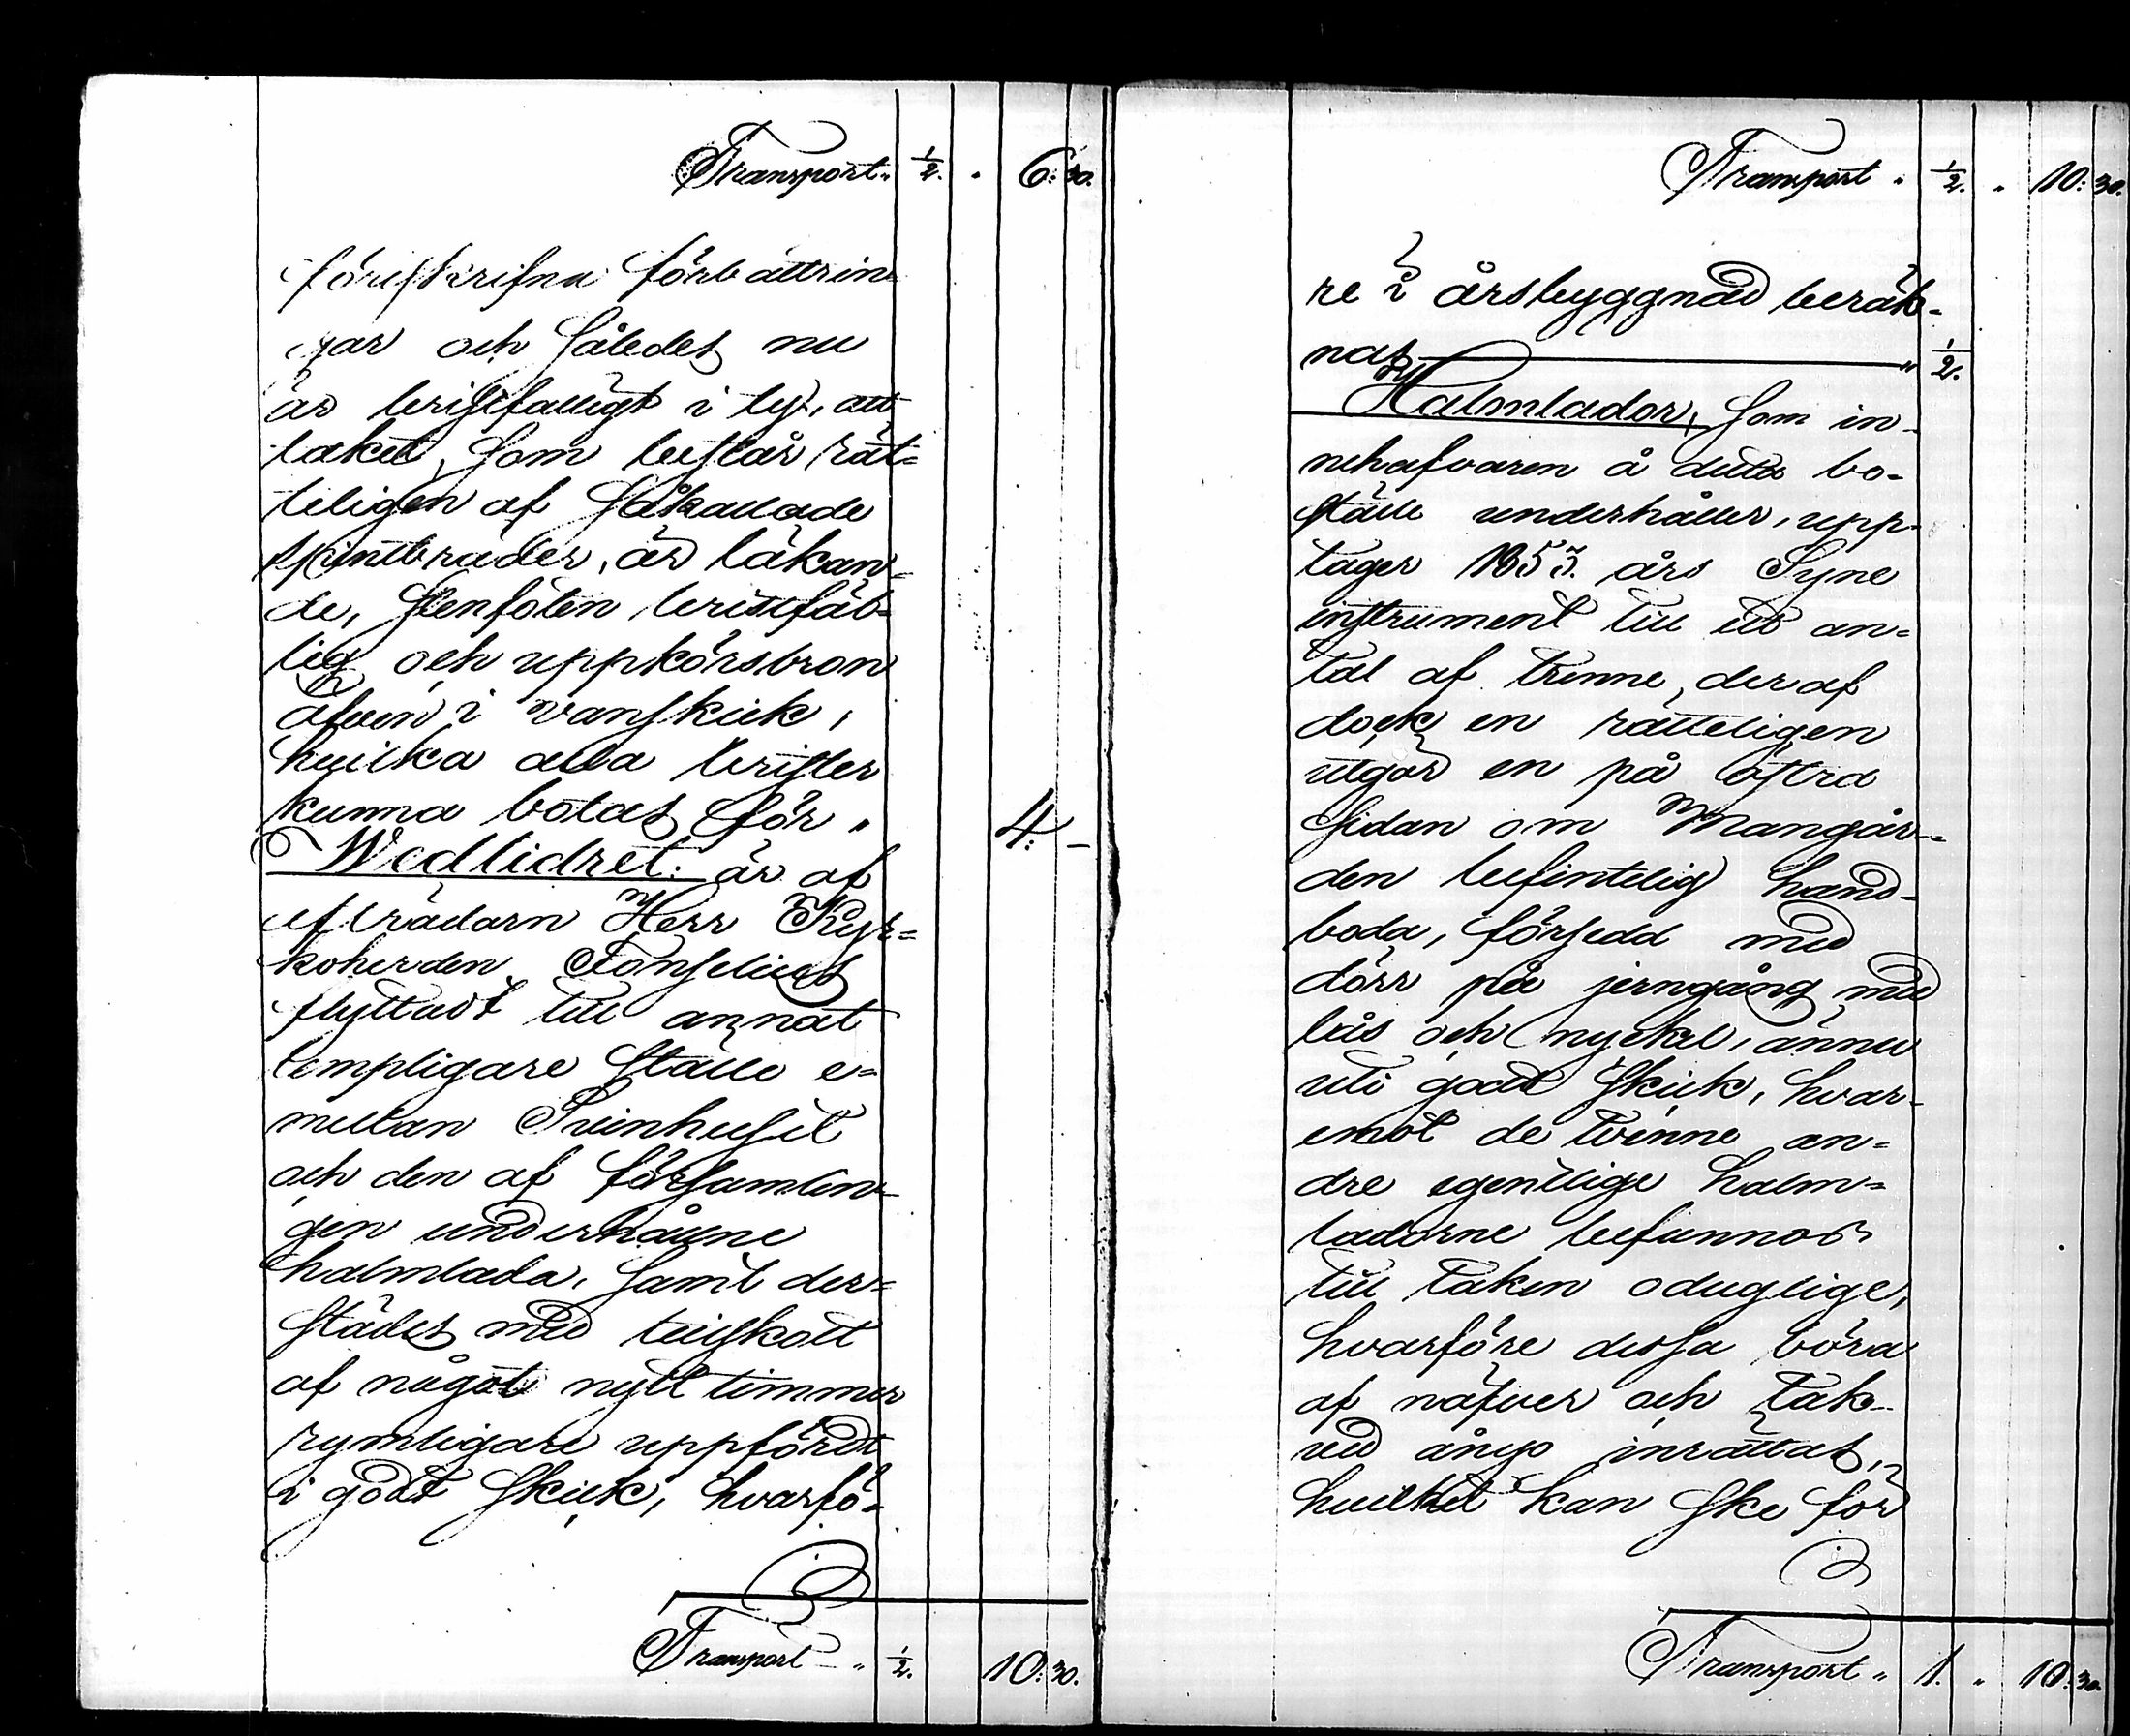 Transport " 1/2. " 6: 30.
föreskrifna förbättrin-
gar och således nu
är bristfälligt i ty, att
taket, som består rät=
teligen af såkallade
spintbräder, är läkan=
de, stenfoten bristfäl=
lig och uppkörsbron
äfven i vanskick,
hvilka alla brister
kunna botas för " 4: –
Wedlidret: är af
afträdarn Herr Kyr=
koherden Fonselius
flyttadt till annat
lempligare ställe e=
mellan Svinhuset
och den af församlin-
gen underhållne
halmlada, samt der=
städes med tillskott
af något nytt timmer
rymligare uppfördt
i godt skick, hvarfö=
Transport – " 1/2. 10: 30.
Transport " 1/2. " 10: 30.
re i årsbyggnad beräk-
nas " 1/2.
Halmlador, som in-
nehafvaren å detta bo-
ställe underhåller, upp-
tager 1853. års Syne
instrument till ett an=
tal af trenne, deraf
dock en rätteligen
utgör en på östra
sidan om Mangår=
den befintelig hand-
boda, försedd med
dörr på jerngång med
lås och nyckel, ännu
uti godt skick, hvar-
emot de tvenne an=
dre egentlige halm=
ladorne befunnos
till taken oduglige,
hvarföre dessa böra
af näfver och tak-
ved ånyo inrättas,
hvilket kan ske för
Transport " 1. " 10: 30.